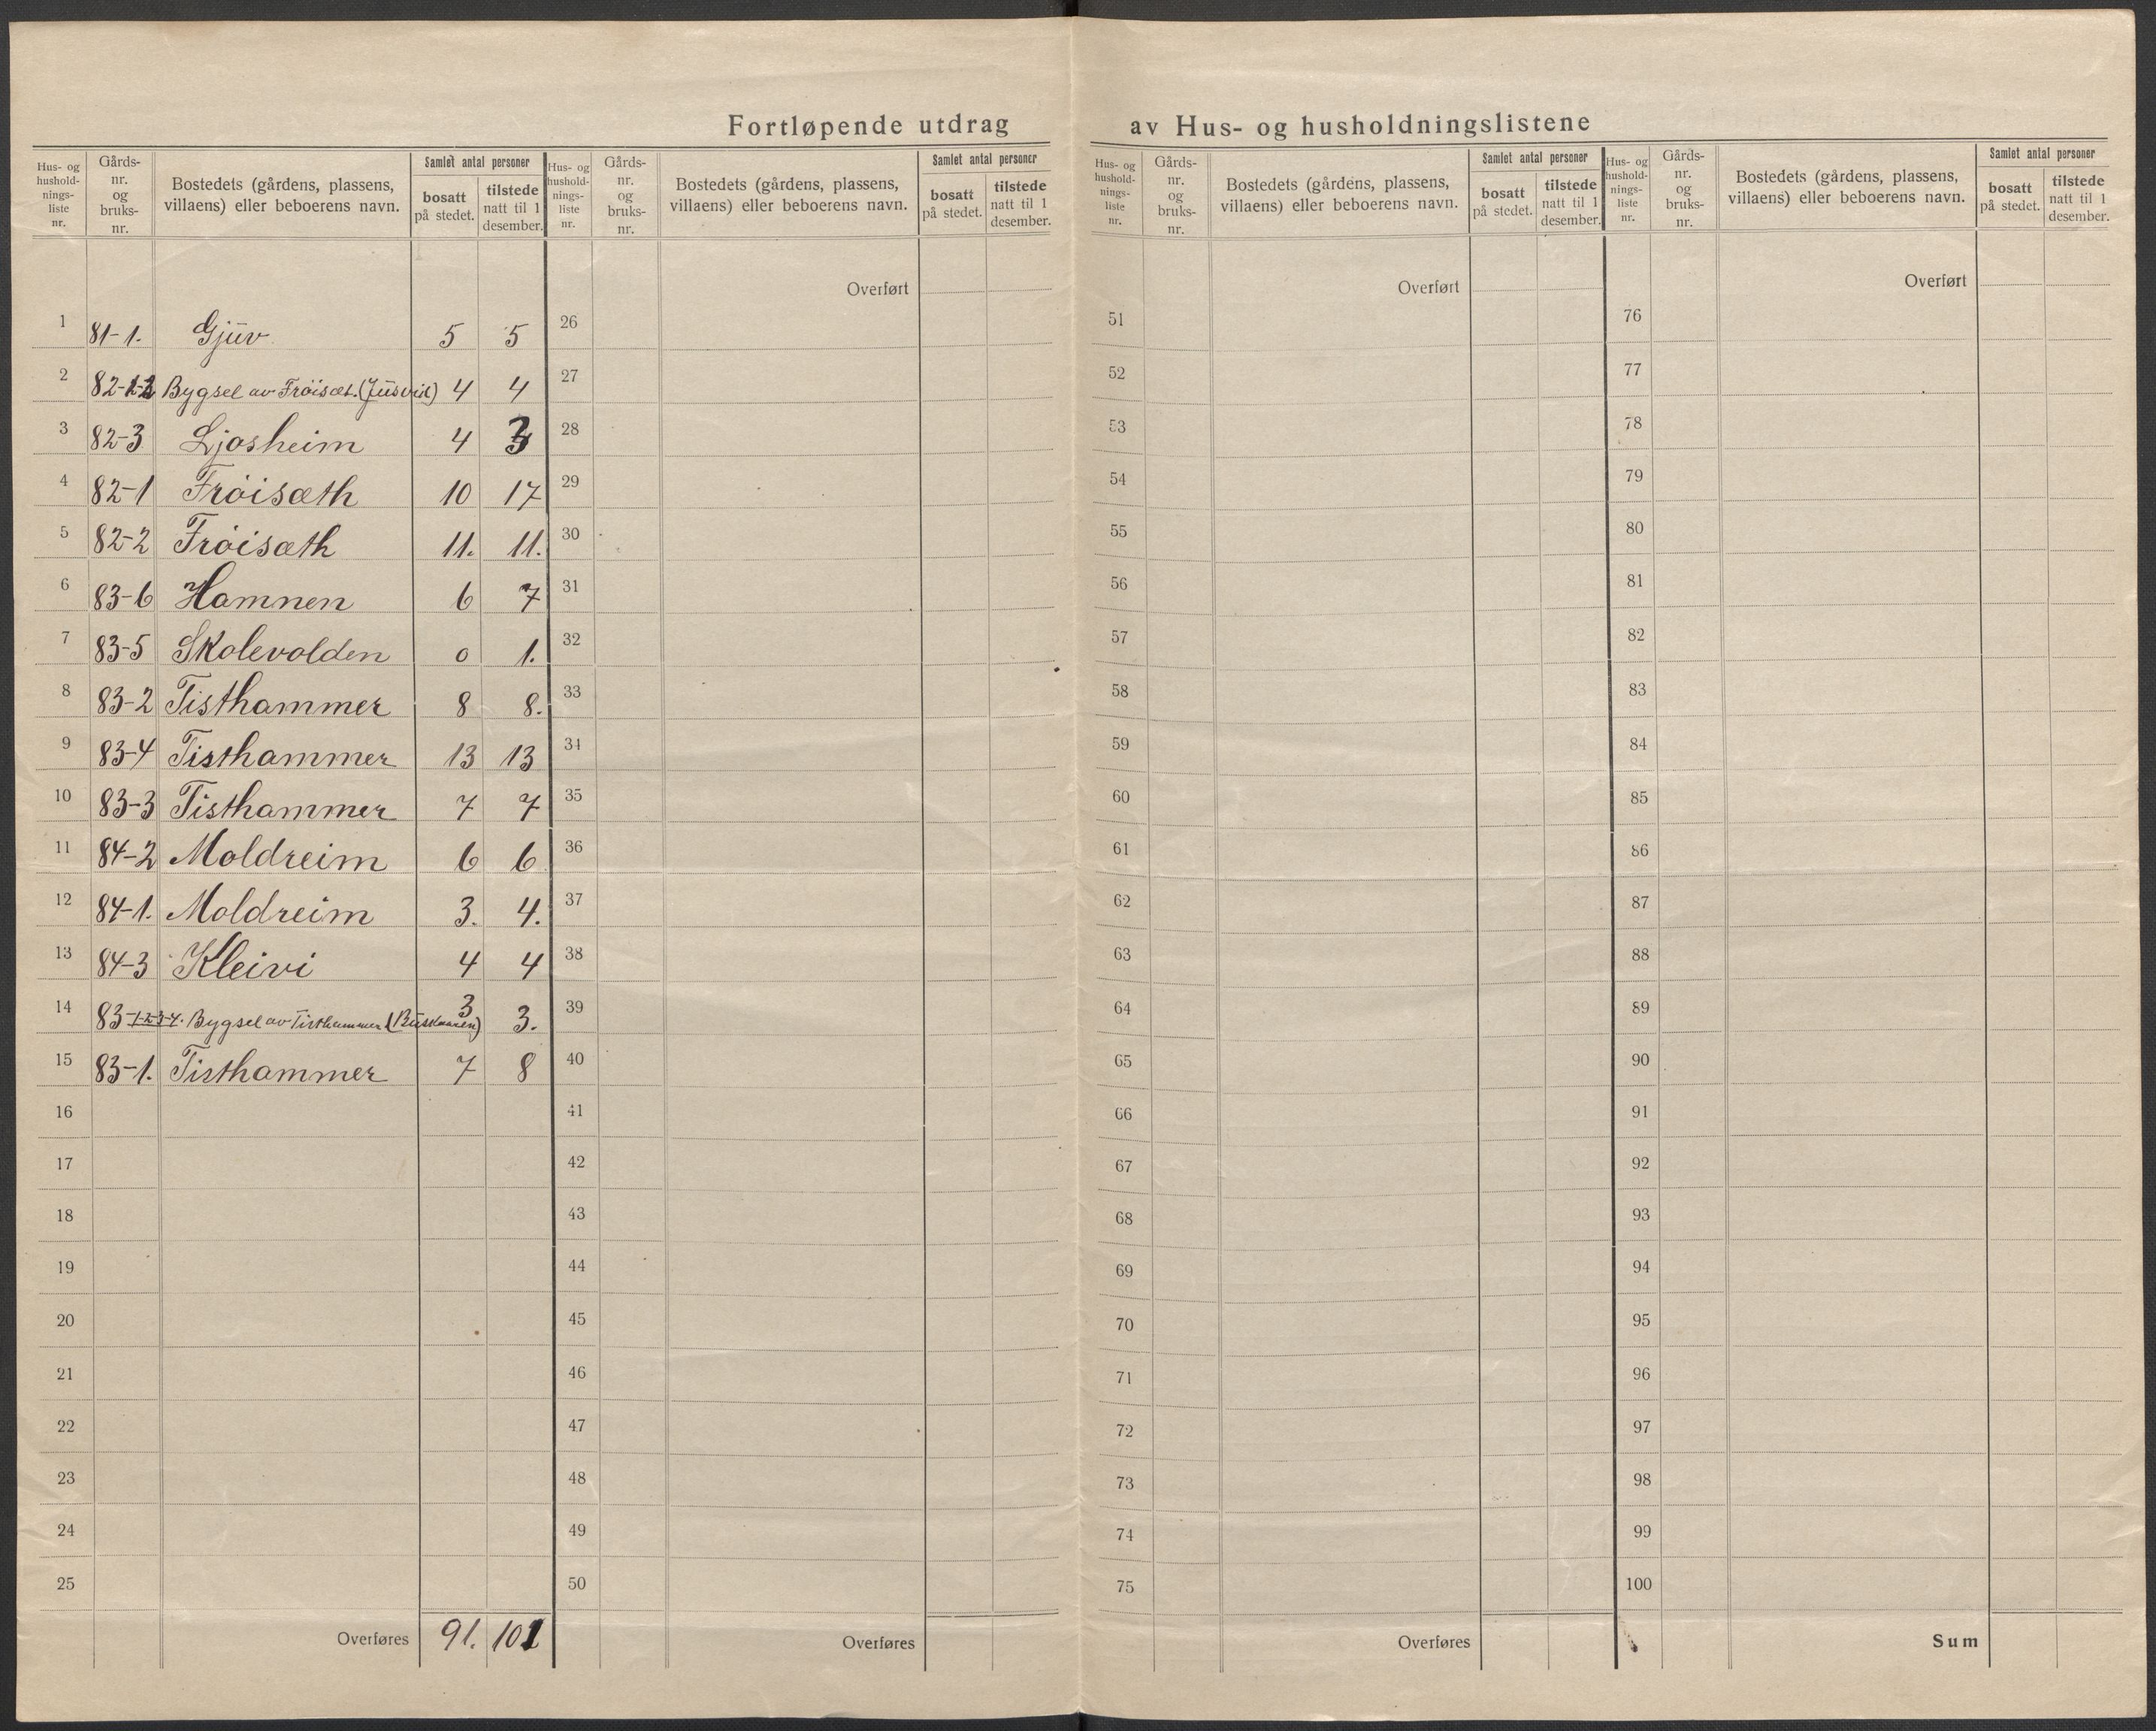 Fortløpende utdrag av Hus- og husholdningslistene
Hus- og husholdnings-liste nr. Gårds-nr. og bruks-nr. Bostedets (gårdens, plassens, villaens) eller beboerens navn. Samlet antal personer bosatt på stedet. tilstede natt til 1 desember.
1 81-1. Gjüv 5 5
2 82-1-2 Bygsel av Frøisæt. (Jüsvik) 4 4
3 82-3 Ljosheim 4 3
4 82-1 Frøisæth 10 17
5 82-2 Frøisæth 11. 11.
6 83-6 Hamnen 6 7
7 83-5 Skolevolden 0 1.
8 83-2 Tisthammer 8 8.
9 83-4 Tisthammer 13 13
10 83-3 Tisthammer 7 7
11 84-2 Moldreim 6 6
12 84-1. Moldreim 3. 4.
13 84-3 Kleivi 4 4
14 83-1-2-3-4. Bygsel av Tisthammer 3 3.
15 83-1. Tisthammer 7 8
16
17
18
19
20
21
22
23
24
25
Overføres 91. 101
Hus- og husholdnings-liste nr. Gårds-nr. og bruks-nr. Bostedets (gårdens, plassens, villaens) eller beboerens navn. Samlet antal personer bosatt på stedet. tilstede natt til 1 desember.
Overført
26
27
28
29
30
31
32
33
34
35
36
37
38
39
40
41
42
43
44
45
46
47
48
49
50
Overføres
Hus- og husholdnings-liste nr. Gårds-nr. og bruks-nr. Bostedets (gårdens, plassens, villaens) eller beboerens navn. Samlet antal personer bosatt på stedet. tilstede natt til 1 desember.
Overført
51
52
53
54
55
56
57
58
59
60
61
62
63
64
65
66
67
68
69
70
71
72
73
74
75
Overføres
Hus- og husholdnings-liste nr. Gårds-nr. og bruks-nr. Bostedets (gårdens, plassens, villaens) eller beboerens navn. Samlet antal personer bosatt på stedet. tilstede natt til 1 desember.
Overført
76
77
78
79
80
81
82
83
84
85
86
87
88
89
90
91
92
93
94
95
96
97
98
99
100
Sum